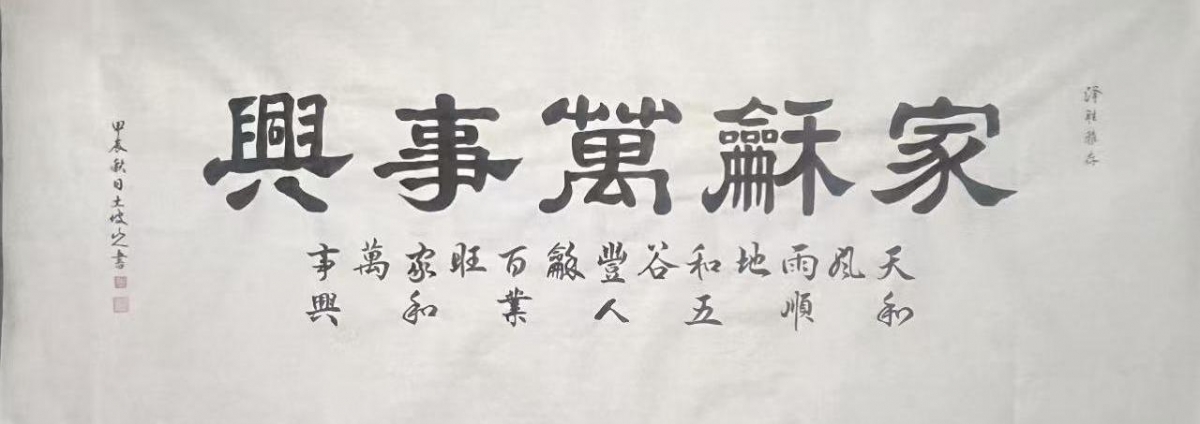 泽胜雅存
家龢萬事興
天和風雨順地和五谷豐人龢百業旺家和萬事興
甲辰秋日土坡書